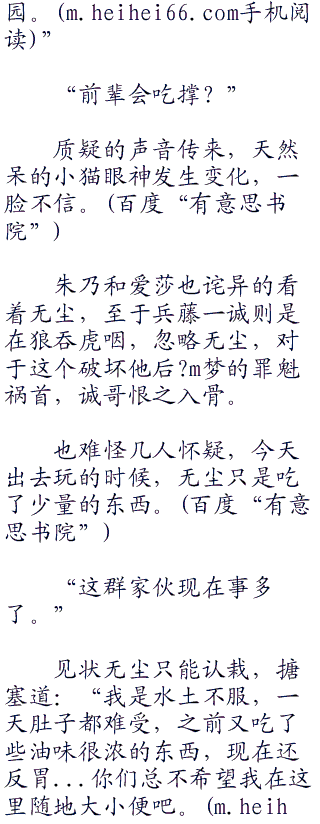 园。(m.heihei66.com手机阅
读)”
“前辈会吃撑？”
质疑的声音传来，天然
呆的小猫眼神发生变化，一
脸不信。(百度“有意思书
院”)
朱乃和爱莎也诧异的看
着无尘，至于兵藤一诚则是
在狼吞虎咽，忽略无尘，对
于这个破坏他后?m梦的罪魁
祸首，诚哥恨之入骨。
也难怪几人怀疑，今天
出去玩的时候，无尘只是吃
了少量的东西。(百度“有意
思书院”)
“这群家伙现在事多
了。”
见状无尘只能认栽，搪
塞道：“我是水土不服，一
天肚子都难受，之前又吃了
些油味很浓的东西，现在还
反胃...你们总不希望我在这
里随地大小便吧。(m.heih